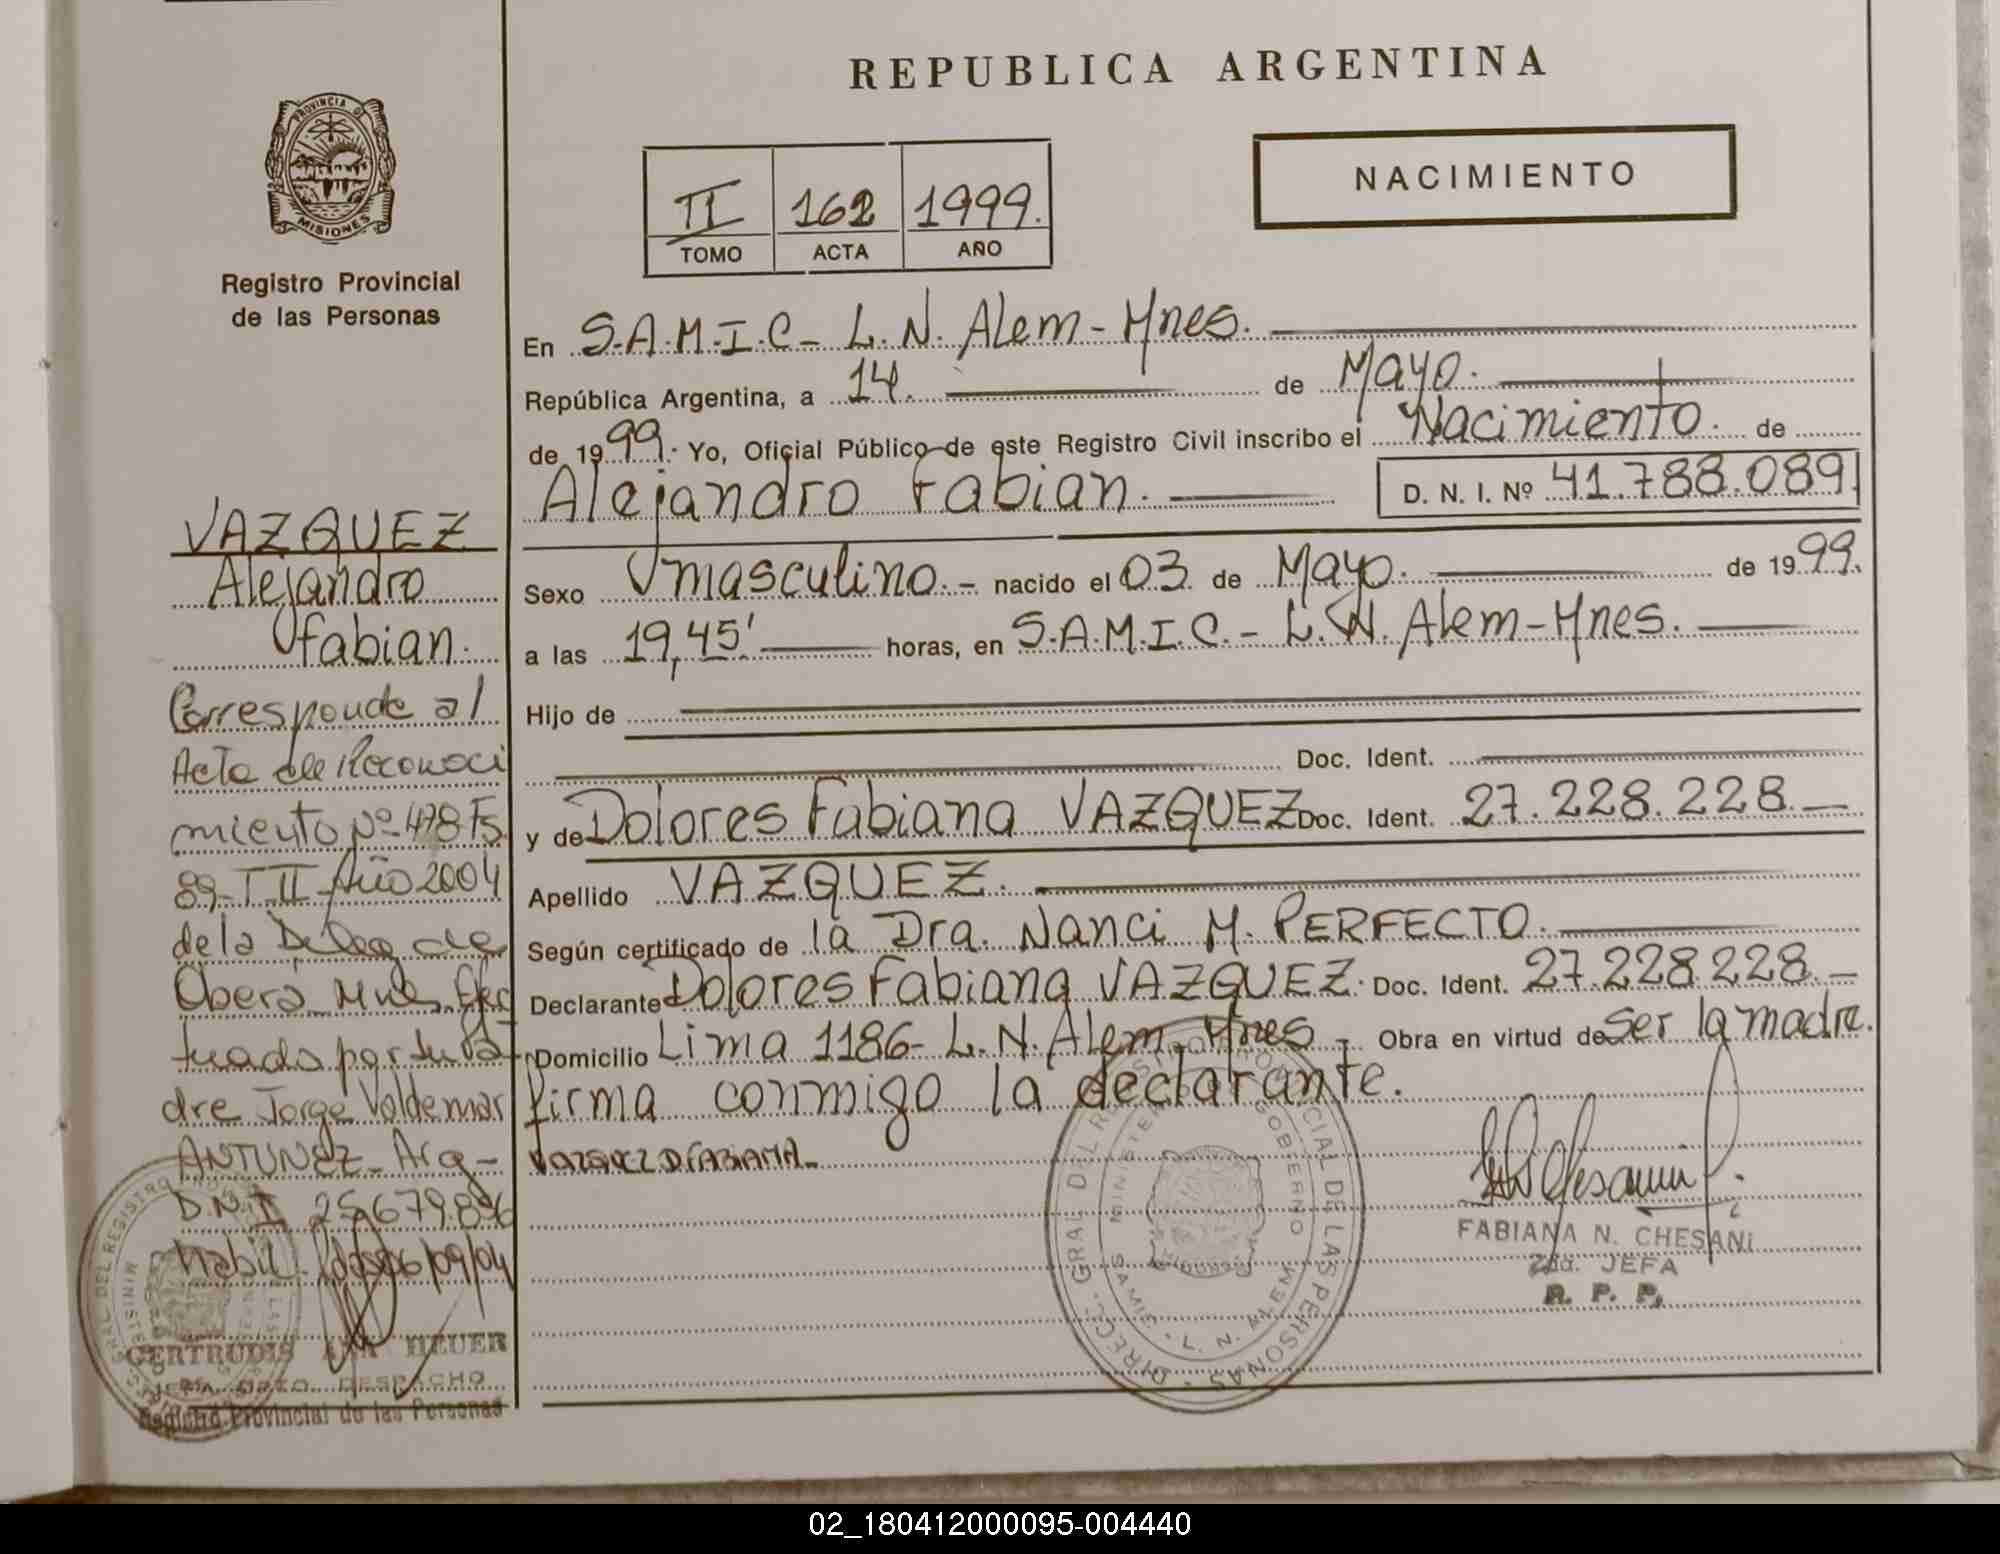 REPUBLICA ARGENTINA
PROVINCIA DE
MISIONES
Registro Provincial
de las Personas
NACIMIENTO
II 162 1999.
TOMO ACTA AÑO
En S.A.M.I.C- L.N. Alem- Mnes.
República Argentina, a 14. de Mayo.
de 1999. Yo, Oficial Público de este Registro Civil inscribo el Nacimiento. de
Alejandro Fabian. D. N. I. Nº 41.788.089
Sexo masculino.- nacido el 03 de Mayo. de 1999.
a las 19,45' horas, en S.A.M.I.C.- L.N. Alem-Mnes.
Hijo de
Doc. Ident.
y de Dolores Fabiana VAZQUEZ Doc. Ident. 27.228.228.
Apellido VAZQUEZ.
Según certificado de la Dra. Nanci M. PERFECTO.
Declarante Dolores Fabiana VAZQUEZ. Doc. Ident. 27.228.228.-
Domicilio Lima 1186- L.N. Alem- Mnes - Obra en virtud de ser la madre.
firma conmigo la declarante.
VAZQUEZ D FABIANA-
FABIANA N. CHESANI
2da. JEFA
R. P. P.
DIRECC. GRAL DEL REGISTRO PROVINCIAL DE LAS PERSONAS
MINISTERIO GOBIERNO
SAMIC - L. N. ALEM
VAZQUEZ
Alejandro
Fabian.
Corresponde al
Acta de Reconoci
miento Nº 478 Fs
89- T II- Año 2004
de la Deleg de
Oberá Mnes. Efec
tuado por su Pa-
dre Jorge Valdemar
ANTUNEZ- Arg-
D.N.I 25679.896
06/09/04
GERTRUDIS ANA HEUER
JEFA DPTO. DESPACHO
Registro Provincial de las Personas
02_180412000095-004440